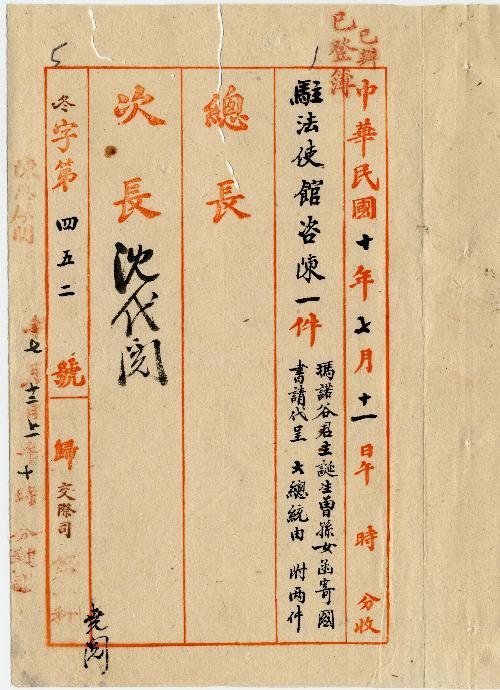 已辦
已登簿
中華民國十年七月十一日午 時 分收
駐法使館咨陳一件
瑪諾谷君主誕生曾孫女函寄國
書請代呈 大總統由 附兩件
總長
次長
沈代閱
冬字第四五二號 歸交際司
七月十二日上午十時
堯閱